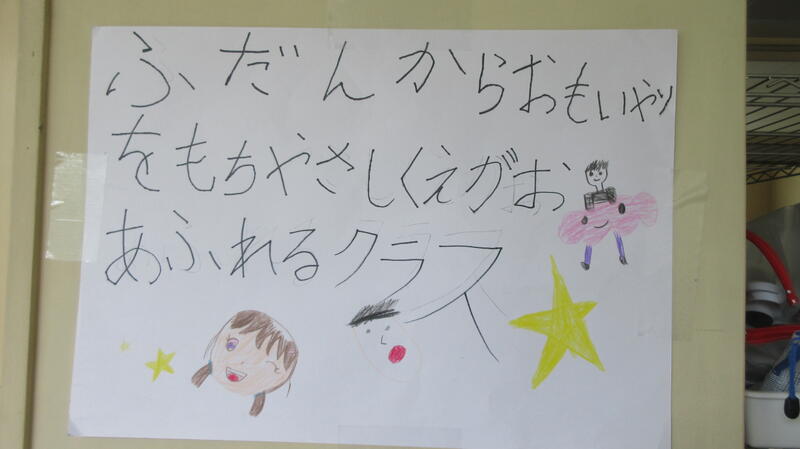 ふだんからおもいやり
をもちやさしくえがお
あふれるクラス